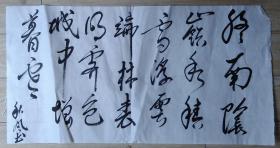 终南陰
嶺秀積
雪浮雲
端林表
明霁色
城中增
暮寒